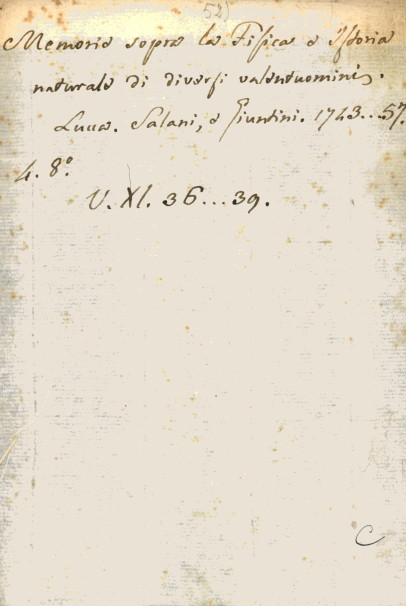 52)
Memorie sopra la Fisica e Istoria
naturale di diversi valentuomini.
Lucca. Salani, e Giuntini. 1743...57.
4. 8.º
V. XI. 36...39.
C